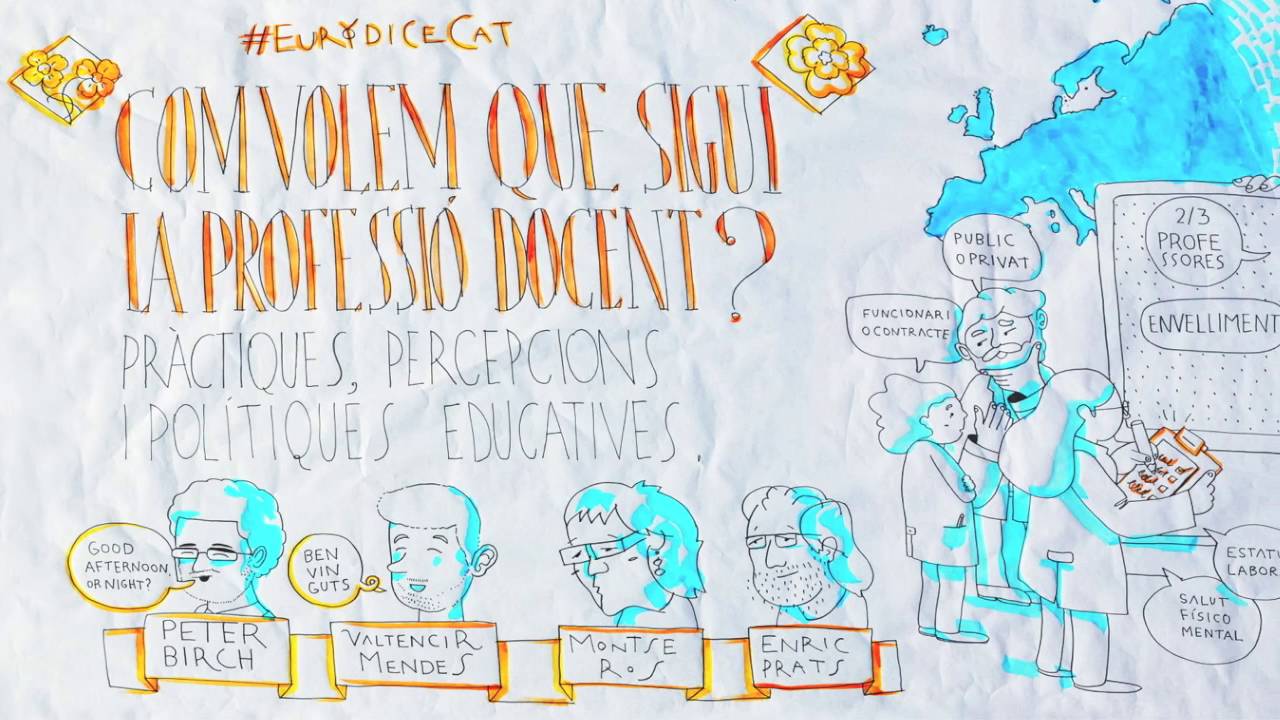 #EURYDICECAT
COM VOLEM QUE SIGUI
LA PROFESSIÓ DOCENT?
PRÀCTIQUES, PERCEPCIONS
I POLÍTIQUES EDUCATIVES.
GOOD
AFTERNOON,
OR NIGHT?
PETER
BIRCH
BEN
VIN
GUTS
VALTENCIR
MENDES
MONTSE
ROS
ENRIC
PRATS
PUBLIC
O PRIVAT
FUNCIONARI
O CONTRACTE
2/3
PROFE
SSORES
ENVELLIMENT
ESTAT
LABOR
SALUT
FÍSICO
MENTAL